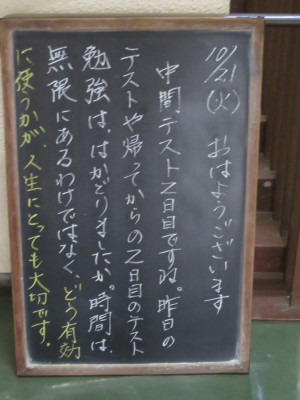 10/21(火) おはようございます
中間テスト2日目ですね。昨日の
テストや帰ってからの2日目のテスト
勉強は、はかどりましたか。時間は、
無限にあるわけではなく、どう有効
に使うかが、人生にとっても大切です。